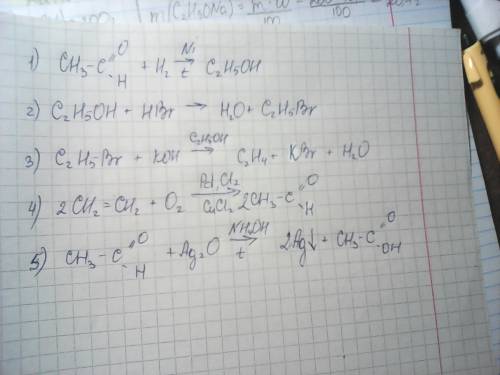 m(C₂H₅ONa) = m·W / m = / 100 =
1) CH₃-C=O H + H₂ Ni → t C₂H₅OH
2) C₂H₅OH + HBr → H₂O + C₂H₅Br
3) C₂H₅Br + KOH C₂H₅OH → C₂H₄ + KBr + H₂O
4) 2CH₂=CH₂ + O₂ Pd,Cl₂ → CuCl₂ 2CH₃-C=O H
5) CH₃-C=O H + Ag₂O NH₄OH → t 2Ag↓ + CH₃-C=O OH